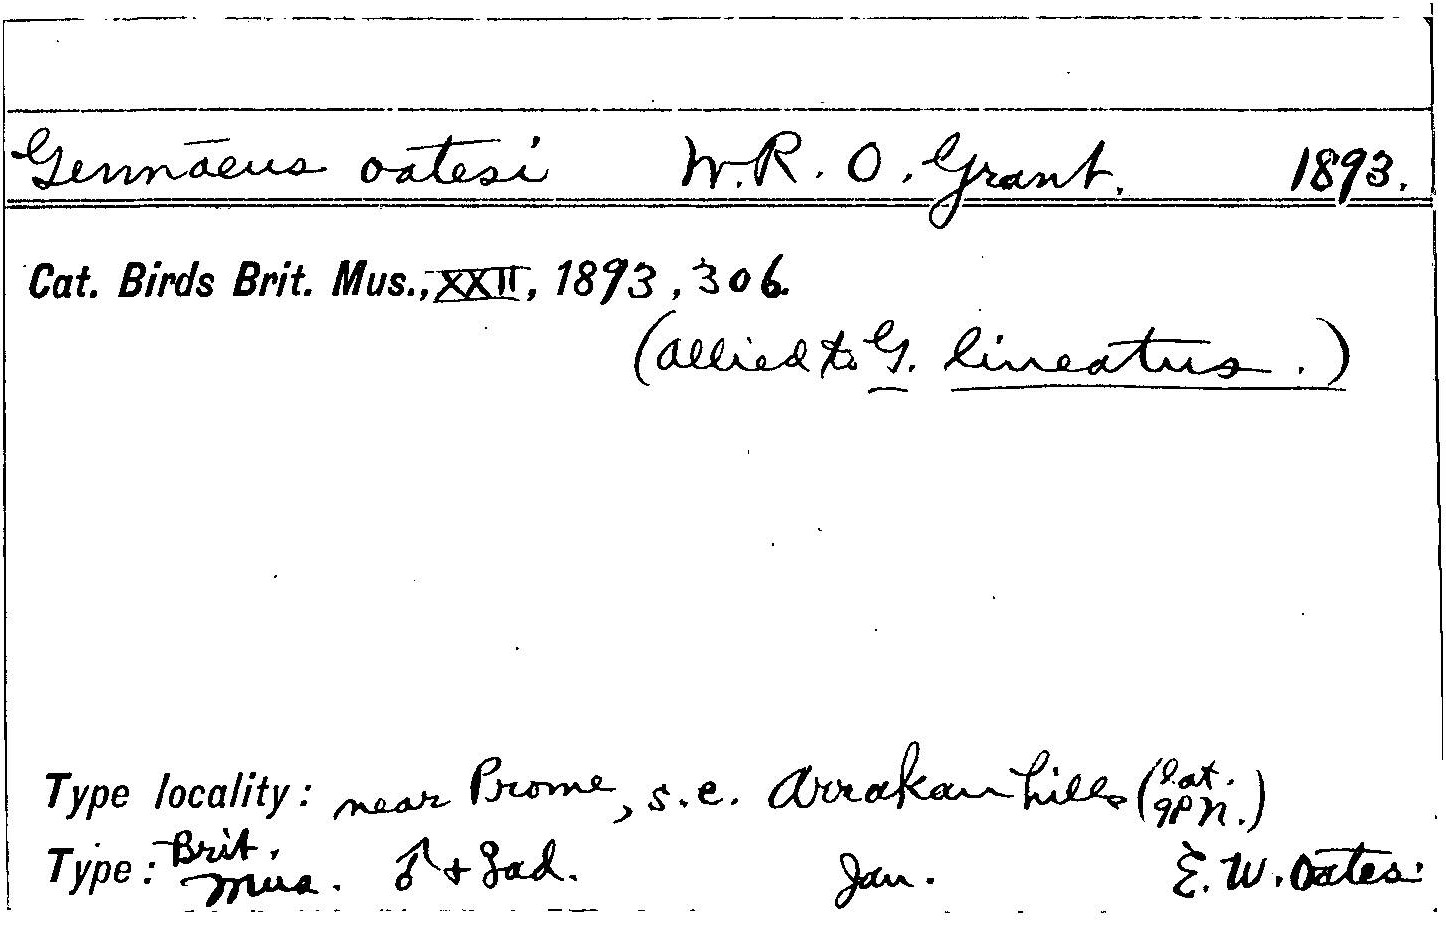 Gennaeus oatesi W. R. O. Grant. 1893.
Cat. Birds Brit. Mus., XXII, 1893, 306.
(allied to G. lineatus.)
Type locality: near Prome, s.e. Arrakan hills (lat. N.)
Type: Brit. Mus. ♂ + ad. Jan. E. W. Oates.